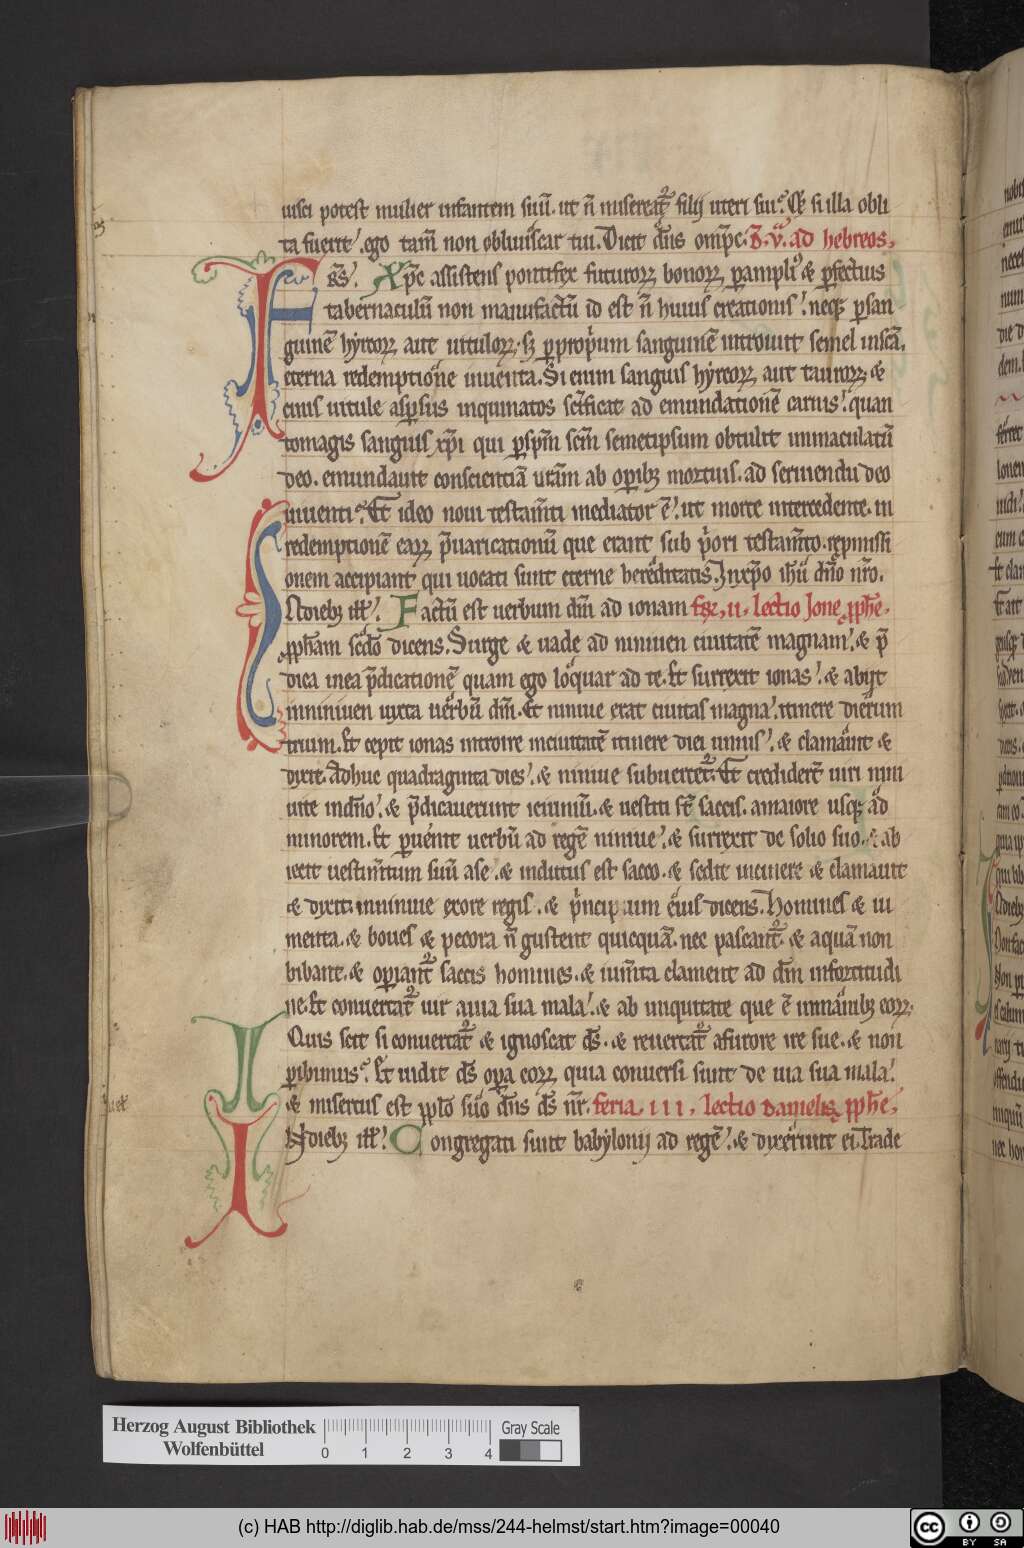 uisci potest mulier infantem suū. ut n̄ misereat᷑ filij uteri sui? Et si illa obli
ta fuerit! ego tam̄ non obliuiscar tui. Dicit dn̄s omp̄c. D. V. ad hebreos,
F R̄S! Xp̄c assistens pontifex futuroꝝ bonoꝝ, ꝑ ampli⁹ & ꝑfectius
tabernaculū non manufactū id est n̄ huius creationis! neqꝫ ꝑ san
guinē hyrcoꝝ aut uituloꝝ. sꝫ ꝑ propͥum sanguinē introiuit semel in scā,
eterna redemptione inuenta. Si enim sanguis hyrcoꝝ aut tauroꝝ, &
cinis uitule aspsus inquinatos sc̄ificat ad emundationē carnis! quan
tomagis sanguis xp̄i qui ꝑ sp̄m sc̄m semetipsum obtulit immaculatū
deo. emundauit conscientiā ur̄am ab oꝑibꝫ mortuis. ad seruiendū deo
uiuenti? Et ideo noui testam̄ti mediator ē! ut morte intercedente. in
redemptionē earꝝ p̄uaricationū que erant sub pͥori testam̄to. repmissi
onem accipiant qui uocati sunt eterne hereditatis. In xp̄o ih̄u dn̄o nr̄o.
I N dieb; ill̄! Factū est uerbum dn̄i ad ionam fr̄ꝫ, ii, lectio Jonę ꝓph̄e,
ꝓph̄am sc̄do dicens. Surge & uade ad niniuen ciuitatē magnam! & p̄
dica in ea p̄dicationē quam ego loquar ad te. Et surrexit ionas! & abijt
in niniuen iuxta uerbū dn̄i. Et niniue erat ciuitas magna! itinere dierum
trium. Et cepit ionas introire in ciuitatē itinere diei unius! & clamauit &
dixit. Adhuc quadraginta dies! & niniue subuertet᷑. Et credider̄t uiri nini
uite in dn̄o! & p̄dicauerunt ieiuniū. & uestiti st̄ saccis. a maiore usqꝫ ad
minorem. Et ꝑuenit uerbū ad regē niniue! & surrexit de solio suo. & ab
iecit uestim̄tum suū a se! & indutus est sacco. & sedit in cinere & clamauit
& dixit. in niniue exore regis. & pͥncipum eius dicens. Homines & iu
menta. & boues & pecora n̄ gustent quicquā. nec pascant᷑. & aquā non
bibant. & oꝑiant᷑ saccis homines. & ium̄ta clament ad dn̄m in fortitudi
ne. Et conuertat᷑ uir a uia sua mala! & ab iniquitate que ē in manibꝫ eorꝝ.
Quis scit si conuertat᷑ & ignoscat ds̄. & reuertat᷑ a furore ire sue. & non
ꝑibimus? Et uidit ds̄ opa eorꝝ, quia conuersi sunt de uia sua mala!
& misertus est ꝓplo suo dn̄s ds̄ nr̄. feria, iii, lectio danielis ꝓph̄e,
I N dieb; ill̄! Congregati sunt babylonij ad regē! & dixerunt ei. Trade
Herzog August Bibliothek
Wolfenbüttel
0 1 2 3 4
Gray Scale
(c) HAB http://diglib.hab.de/mss/244-helmst/start.htm?image=00040
cc BY SA